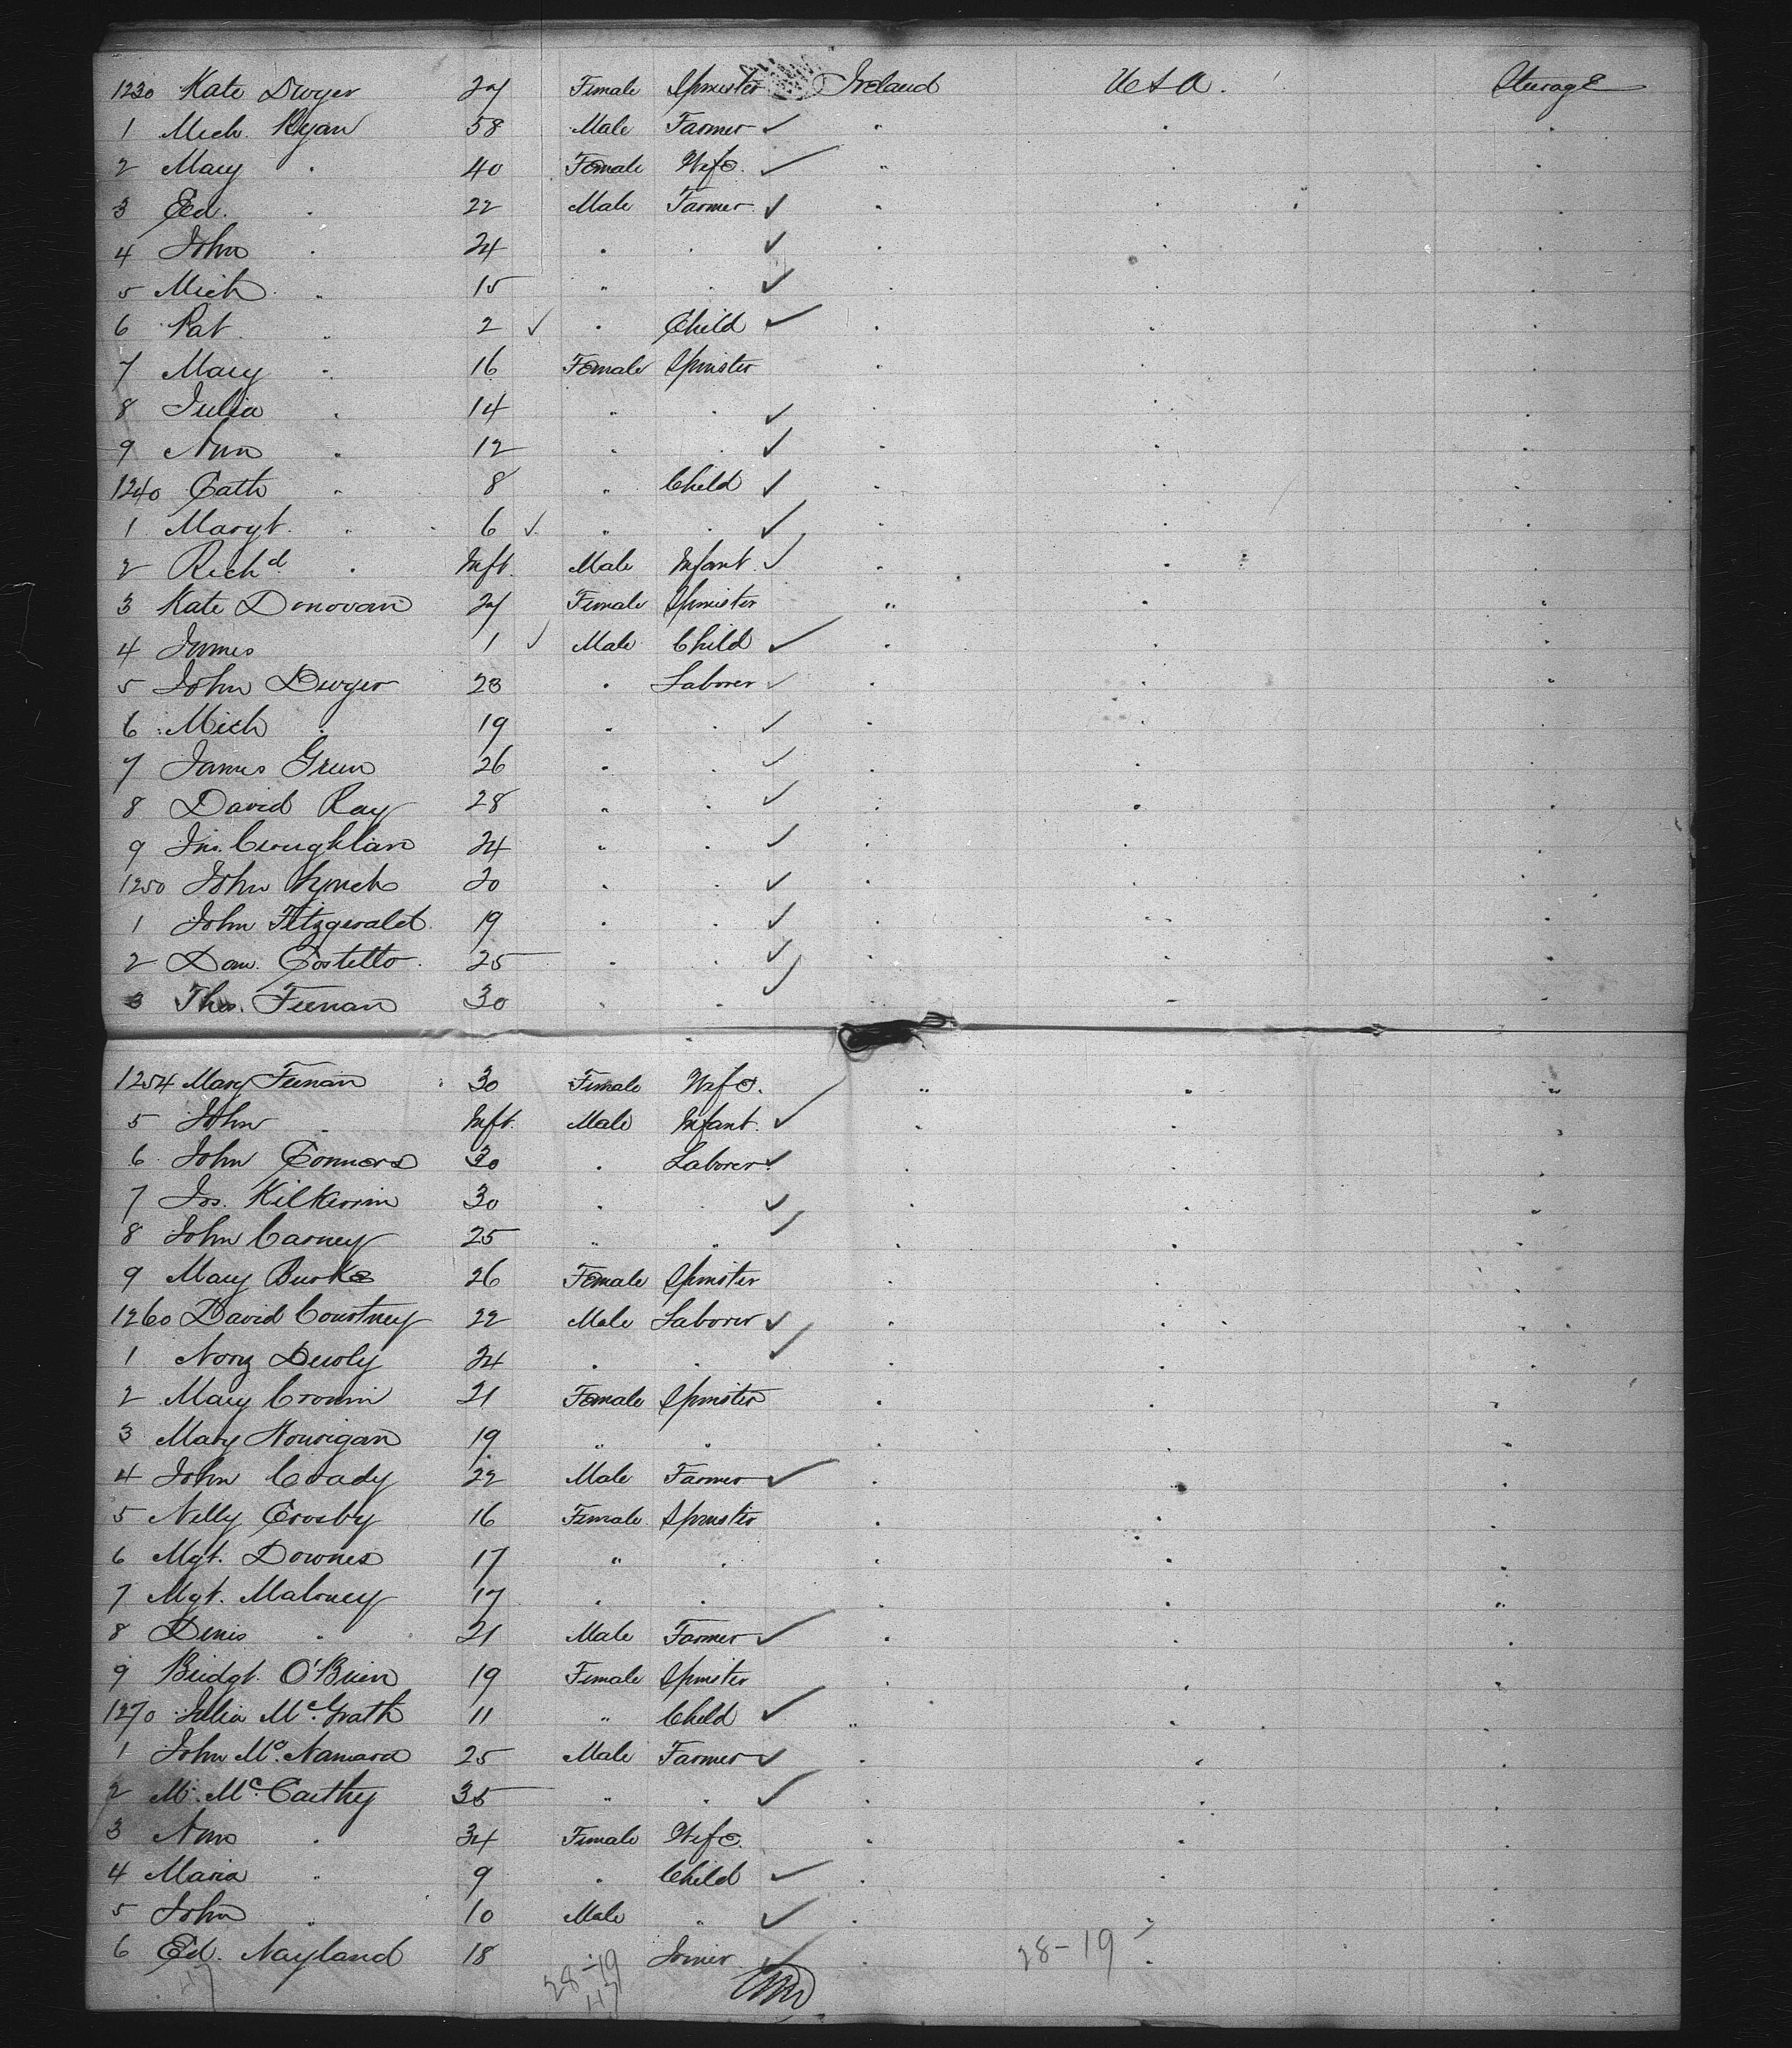 1230 Kate Dwyer 27 Female Spinster Ireland U S A. Steerage
1 Mich. Ryan 58 Male Farmer ✓ " " "
2 Mary " 40 Female Wife. ✓ " " "
3 Ed. " 22 Male Farmer ✓ " " "
4 John " 24 " " ✓ " " "
5 Mich " 15 " " ✓ " " "
6 Pat " 2 ✓ " Child ✓ " " "
7 Mary " 16 Female Spinster " " "
8 Julia " 14 " " ✓ " " "
9 Ann " 12 " " ✓ " " "
1240 Cath " 8 " Child ✓ " " "
1 Margt. " 6 ✓ " " ✓ " " "
2 Richd " Inft. Male Infant ✓ " " "
3 Kate Donovan 27 Female Spinster " " "
4 James 1 ✓ Male Child ✓ " " "
5 John Dwyer 23 " Laborer ✓ " " "
6 Mich " 19 " " ✓ " " "
7 James Green 26 " " ✓ " " "
8 David Ray 28 " " ✓ " " "
9 Jno. Croughlan 24 " " ✓ " " "
1250 John Lynch 20 " " ✓ " " "
1 John Fitzgerald 19 " " ✓ " " "
2 Dan. Costello 25 " " ✓ " " "
3 Thos. Feenan 30 " " ✓ " " "
1254 Mary Feenan 30 Female Wife. " " "
5 John " Inft. Male Infant. ✓ " " "
6 John Connors 30 " Laborer ✓ " " "
7 Jas. Kilkerrin 30 " " ✓ " " "
8 John Carney 25 " " ✓ " " "
9 Mary Burke 26 Female Spinster " " "
1260 David Courtney 22 Male Laborer ✓ " " "
1 24 " " ✓ " " "
2 Mary Cronin 21 Female Spinster " " "
3 Mary Hourigan 19 " " " " "
4 John Coady 22 Male Farmer ✓ " " "
5 Nelly Crosby 16 Female Spinster " " "
6 Mgt. Downes 17 " " " " "
7 Mgt. Maloney 17 " " " " "
8 Denis " 21 Male Farmer ✓ " " "
9 Bridgt. O'Brien 19 Female Spinster " " "
1270 Julia McGrath 11 " Child ✓ " " "
1 John Mc.Namara 25 Male Farmer ✓ " " "
2 M. McCarthy 35 " " ✓ " " "
3 Ann " 34 Female Wife. " " "
4 Maria " 9 " Child ✓ " " "
5 John " 10 Male " ✓ " " "
6 Ed. Nayland 18 " Joiner ✓ 28-19 " "
47 28-19
47